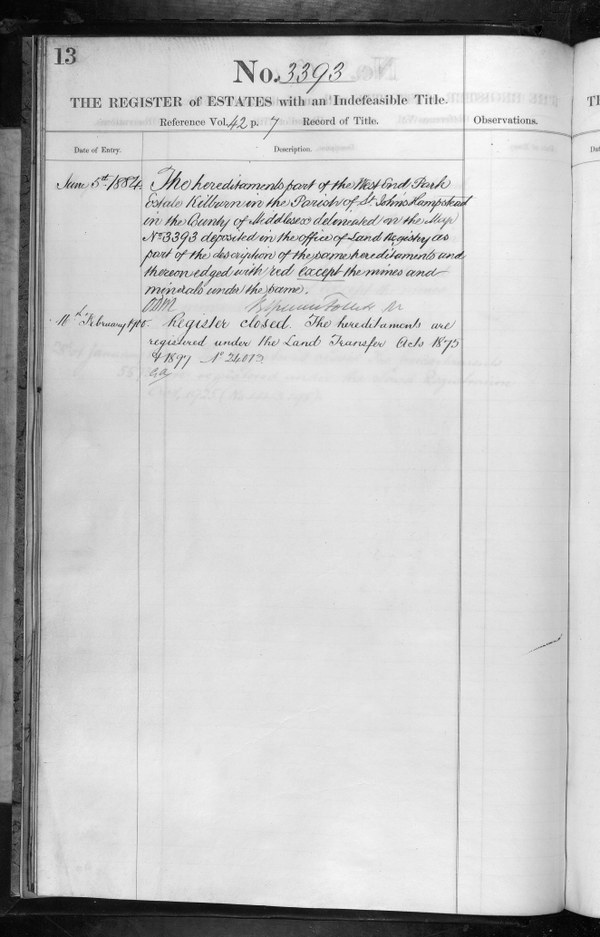 13
No. 3393
THE REGISTER of ESTATES with an Indefeasible Title.
Reference Vol. 42 p. 7 Record of Title.
Observations.
Date of Entry.
Description.
June 5th 1884
The hereditaments part of the West End Park
Estate Kilburn in the Parish of St. John's Hampstead
in the County of Middlesex delineated on the Map
No 3393 deposited in the office of Land Registry as
part of the description of the same hereditaments and
thereon edged with red except the mines and
minerals under the same.
11th February 1900.
Register closed. The hereditaments are
registered under the Land Transfer Acts 1875
& 1897 No